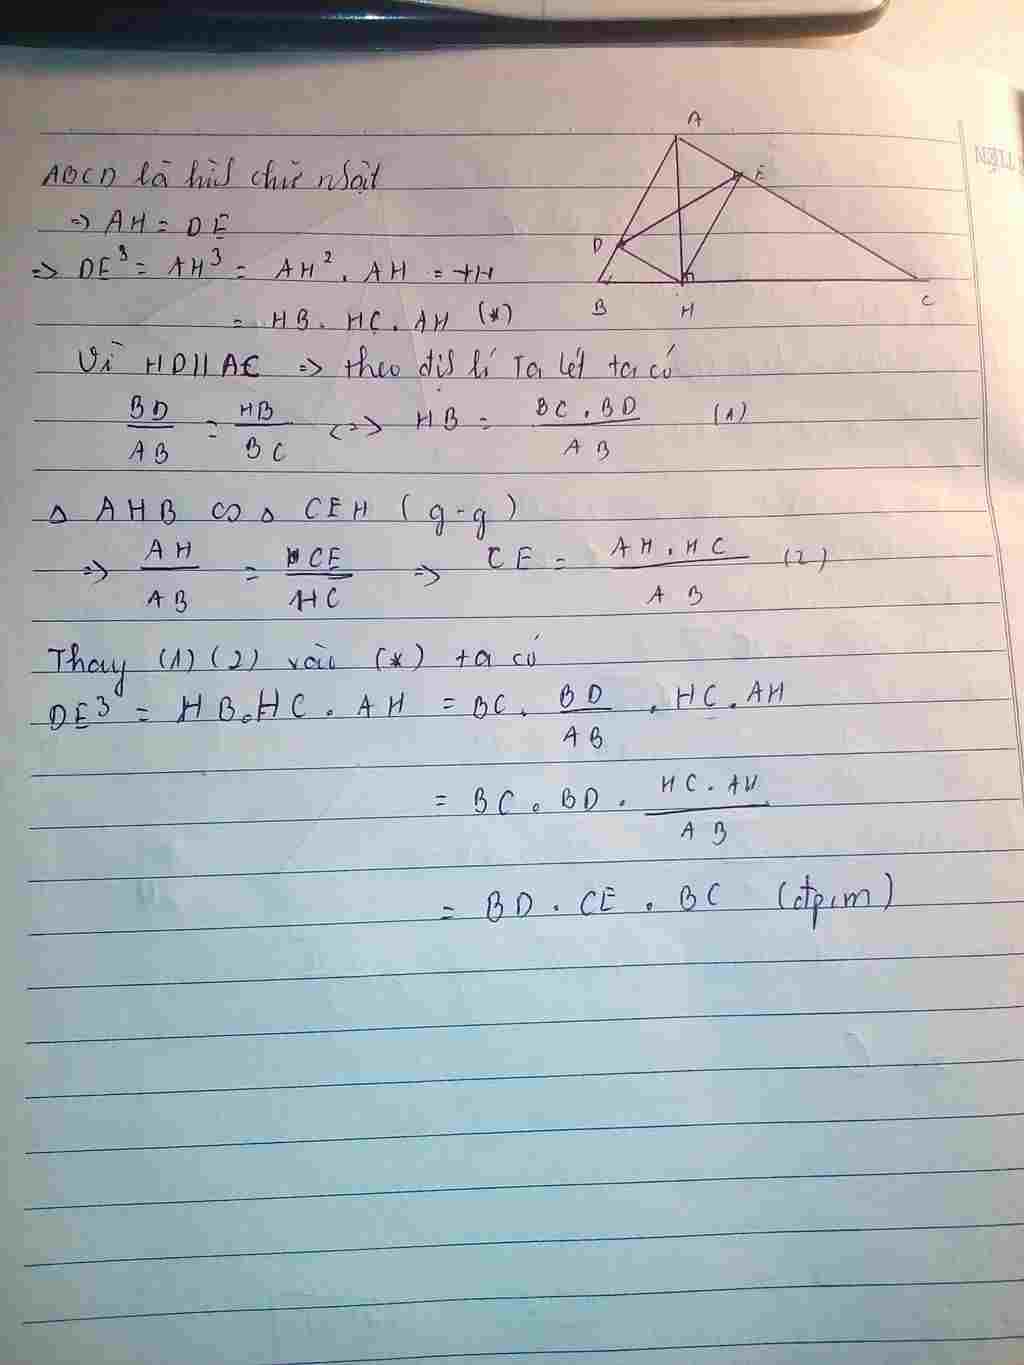 A
E
D
B
H
C
AOCD là hình chữ nhật
=> AH = DE
=> DE³ = AH³ = AH² . AH = +H
= HB . HC . AH (*)
Vì HD // AE => theo định lí Ta lét ta có
BD/AB = HB/BC <=> HB = BC . BD/AB (1)
Δ AHB ∽ Δ CEH (g-g)
=> AH/AB = CE/HC => CE = AH . HC/AB (2)
Thay (1) (2) vào (*) ta có
DE³ = HB . HC . AH = BC . BD/AB . HC . AH
= BC . BD . HC . AH/AB
= BD . CE . BC (đpcm)